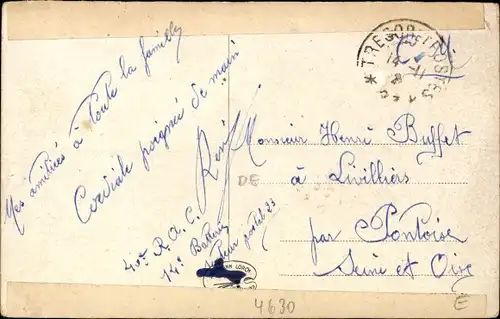 Mes amitiées à toute la famille
Cordiale poignée de main
René
40me R.A.C.
14e Batterie
Secteur postal 33
TRESOR ET POSTES
Monsieur Henri Buffet
à Livilliers
par Pontoise
Seine et Oise
DE
4630
E